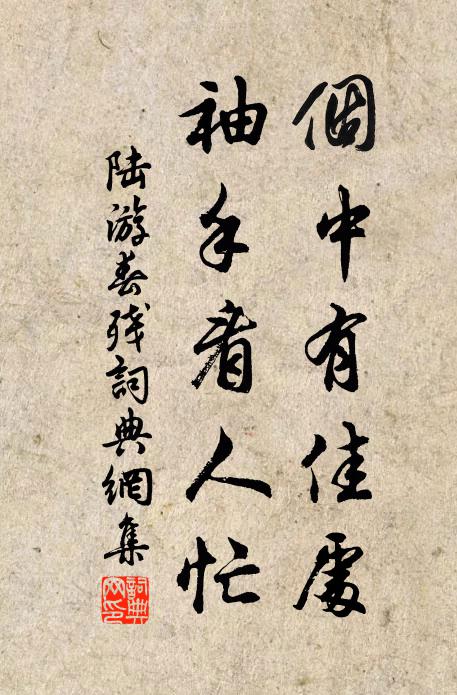 個中有佳處
袖手看人忙
陸游春殘詞典網集
詞典网印